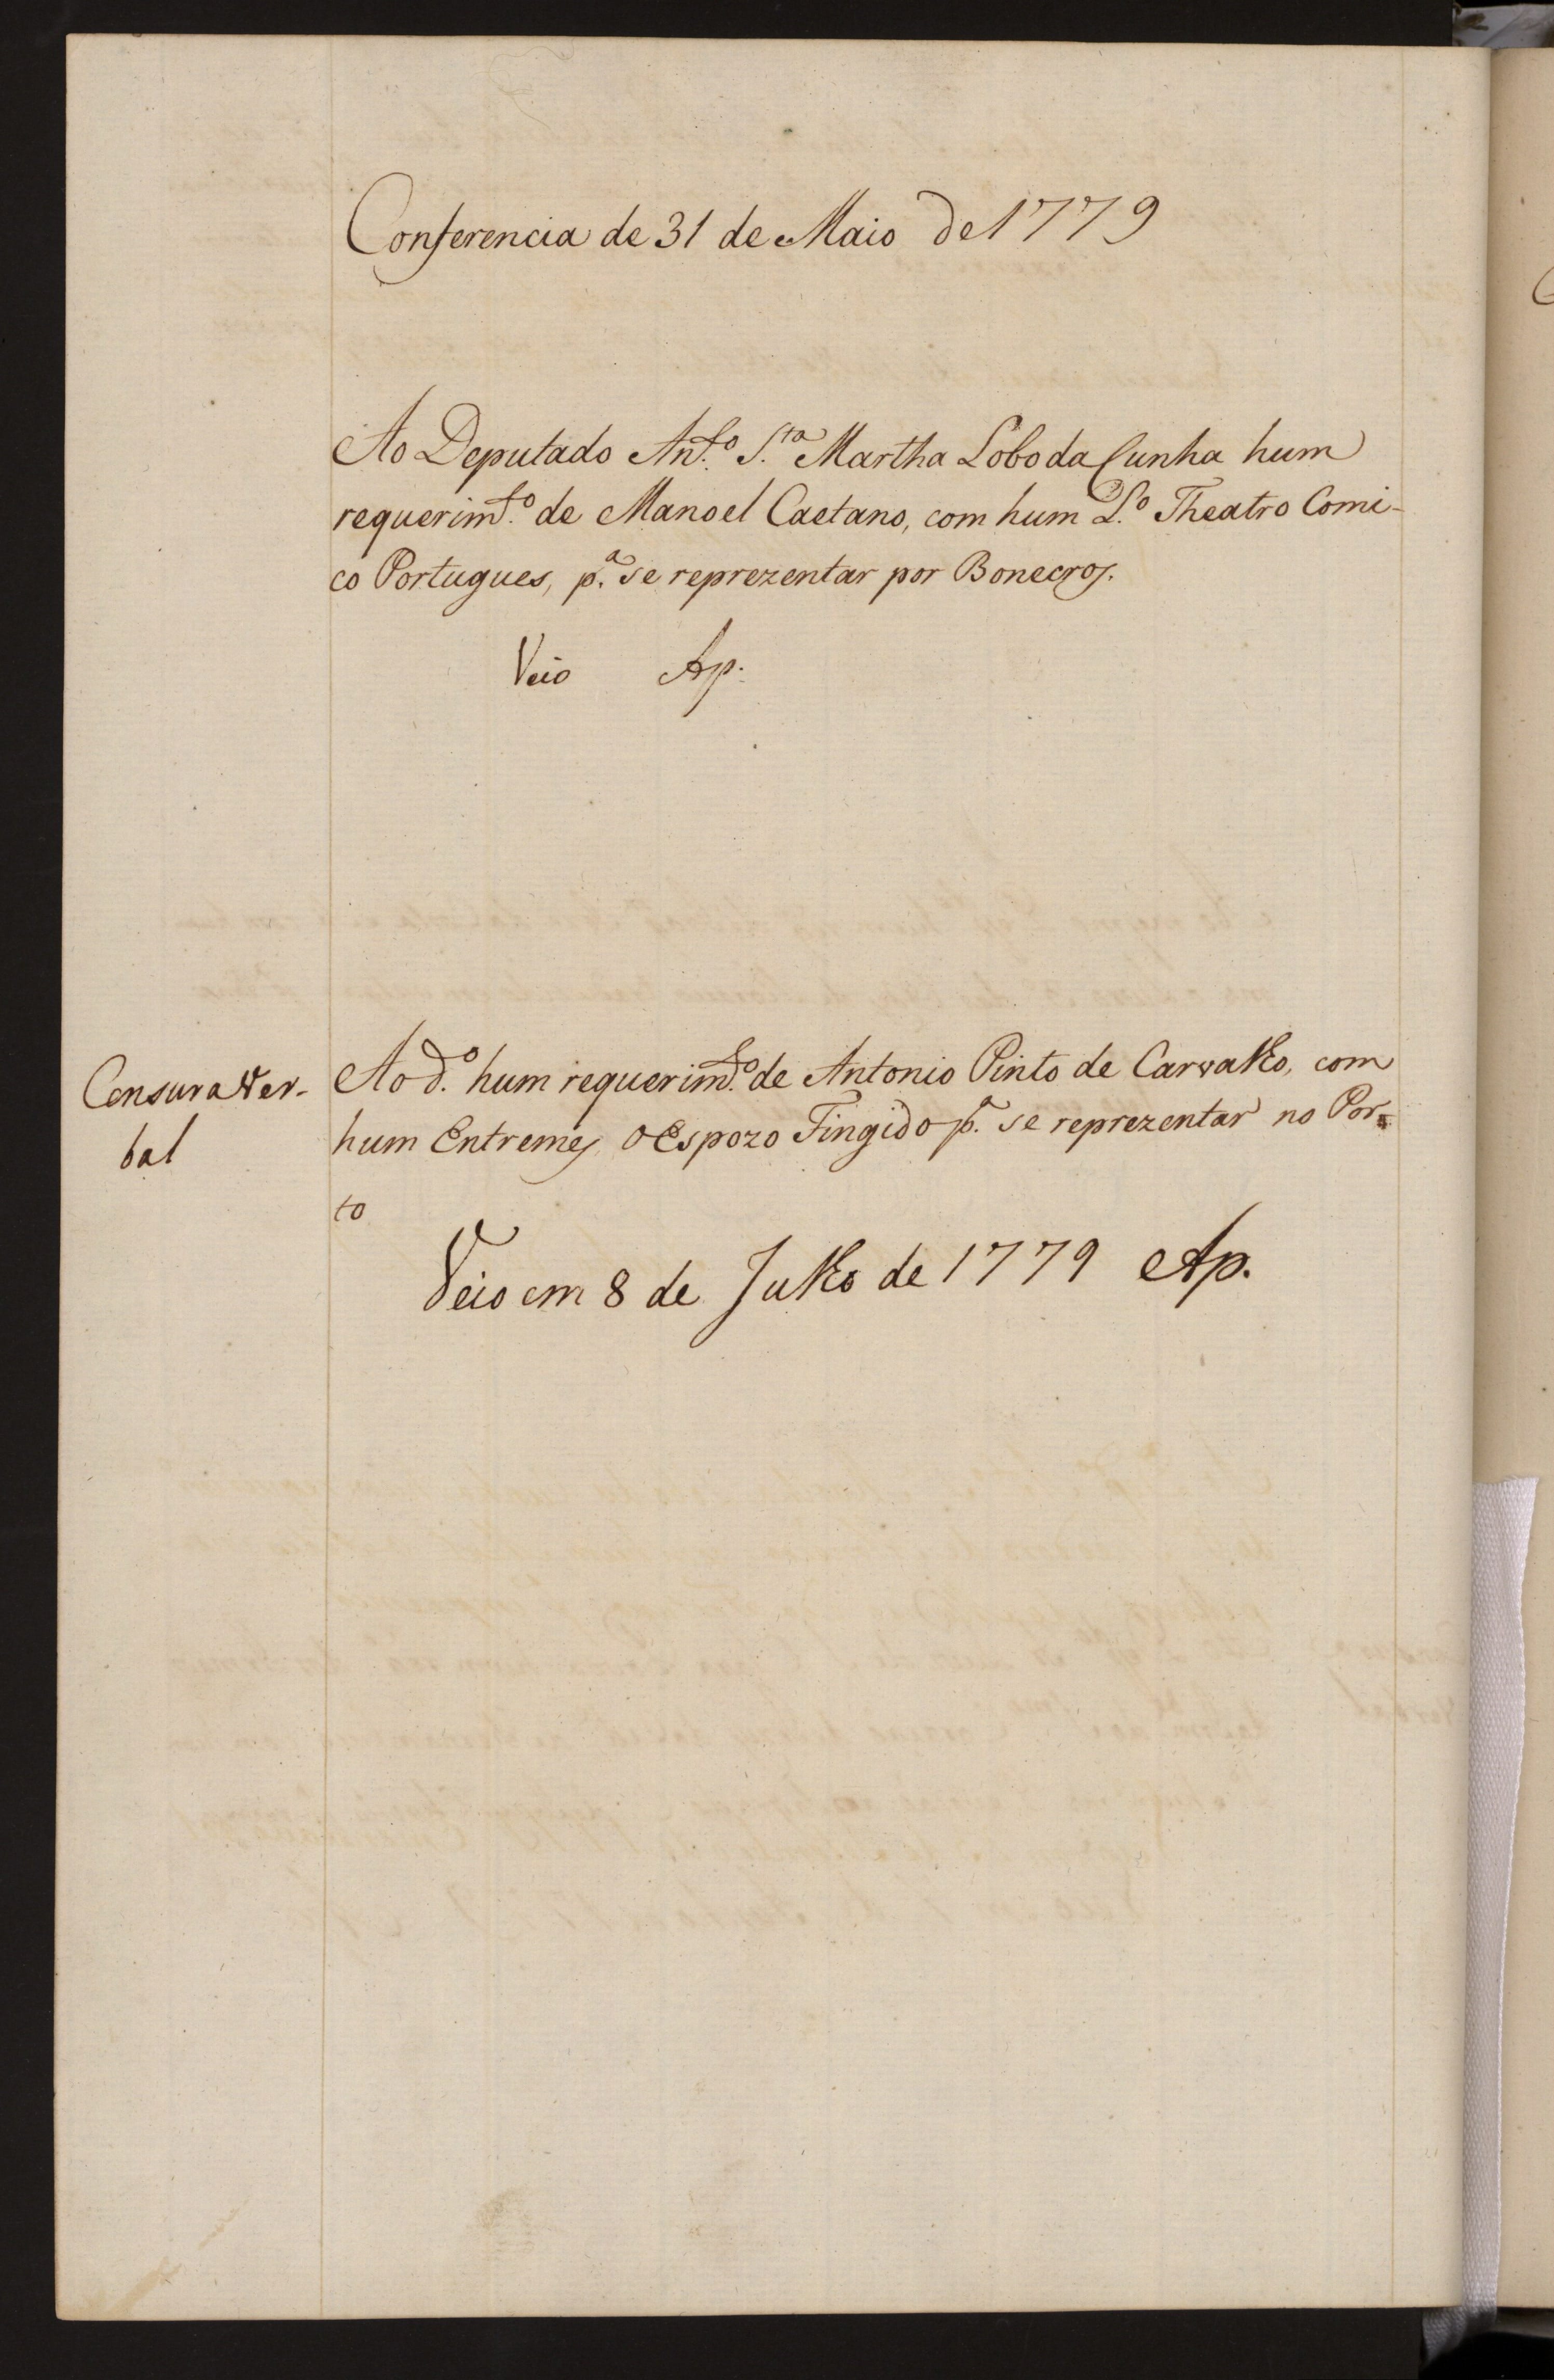 Conferencia de 31 de Maio de 1779
Ao Deputado Ant.º S.ta Martha Lobo da Cunha hum
requerim.to de Manoel Caetano, com hum L.º Theatro Comi-
co Portugues, p.ª se reprezentar por Bonecros.
Veio Ap.
Censura Ver-
bal
Ao d.º hum requerim.to de Antonio Pinto de Carvalho, com
hum Entremes, o Espozo Fingido p.ª se reprezentar no Por-
to
Veio em 8 de Julho de 1779 Ap.